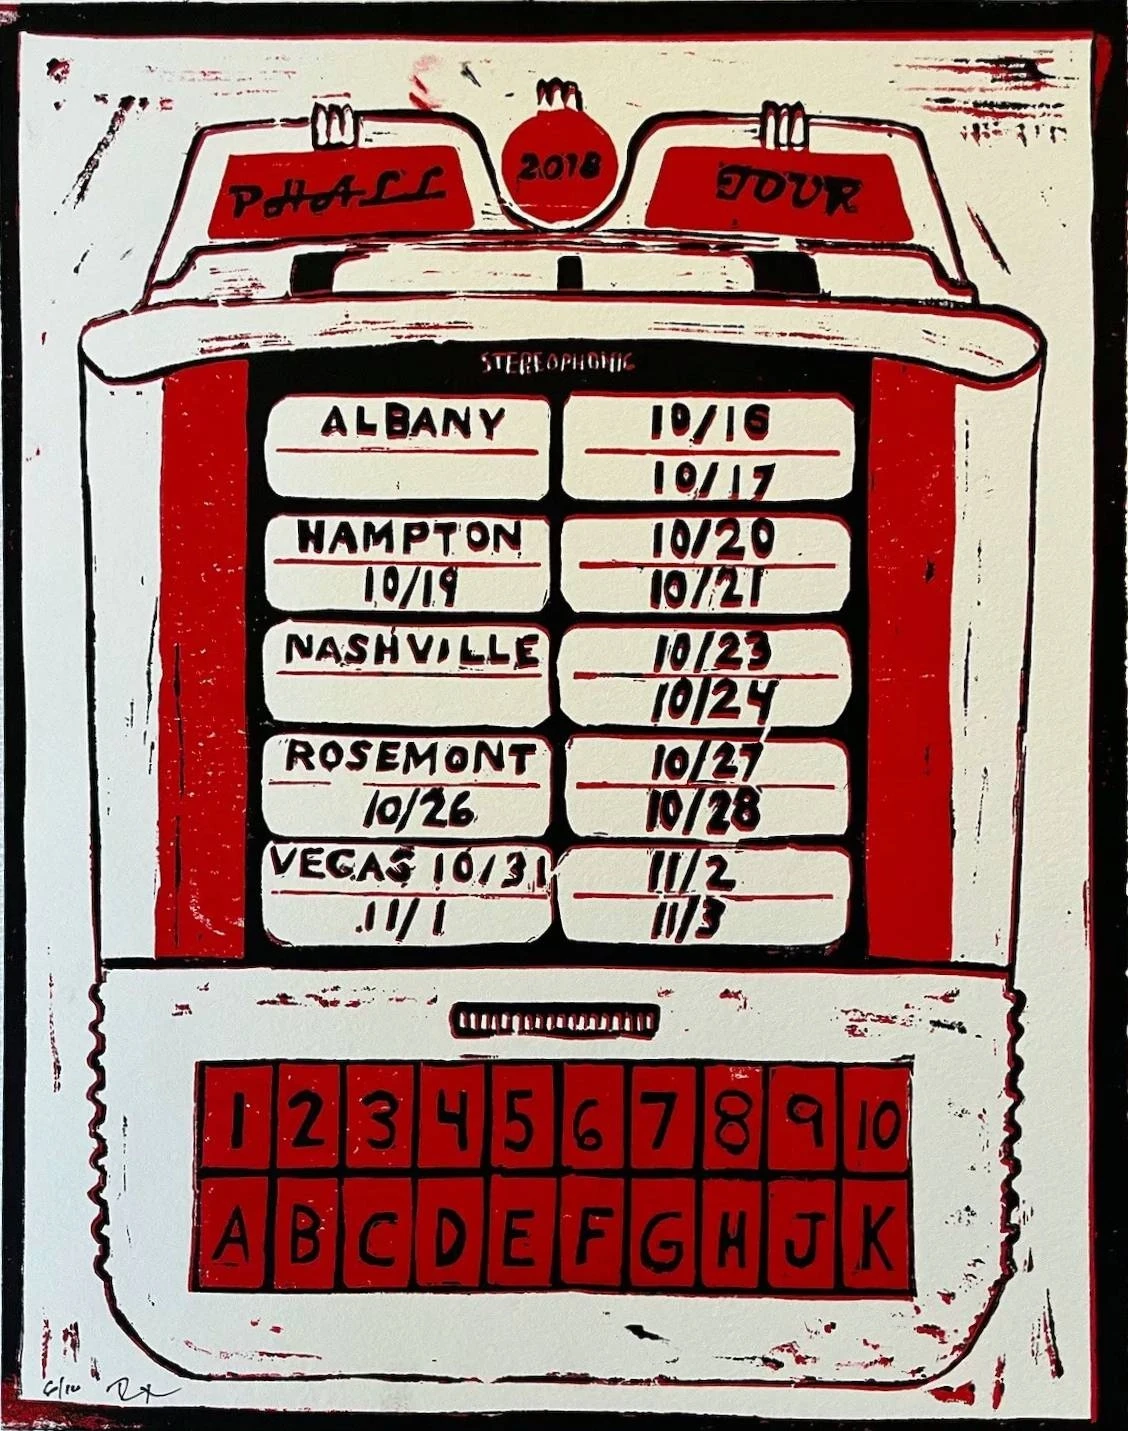 PHALL 2018 TOUR
STEREOPHONIC
ALBANY 10/16
10/17
HAMPTON 10/20
10/19 10/21
NASHVILLE 10/23
10/24
ROSEMONT 10/27
10/26 10/28
VEGAS 10/31 11/2
11/1 11/3
1 2 3 4 5 6 7 8 9 10
A B C D E F G H J K
6/10